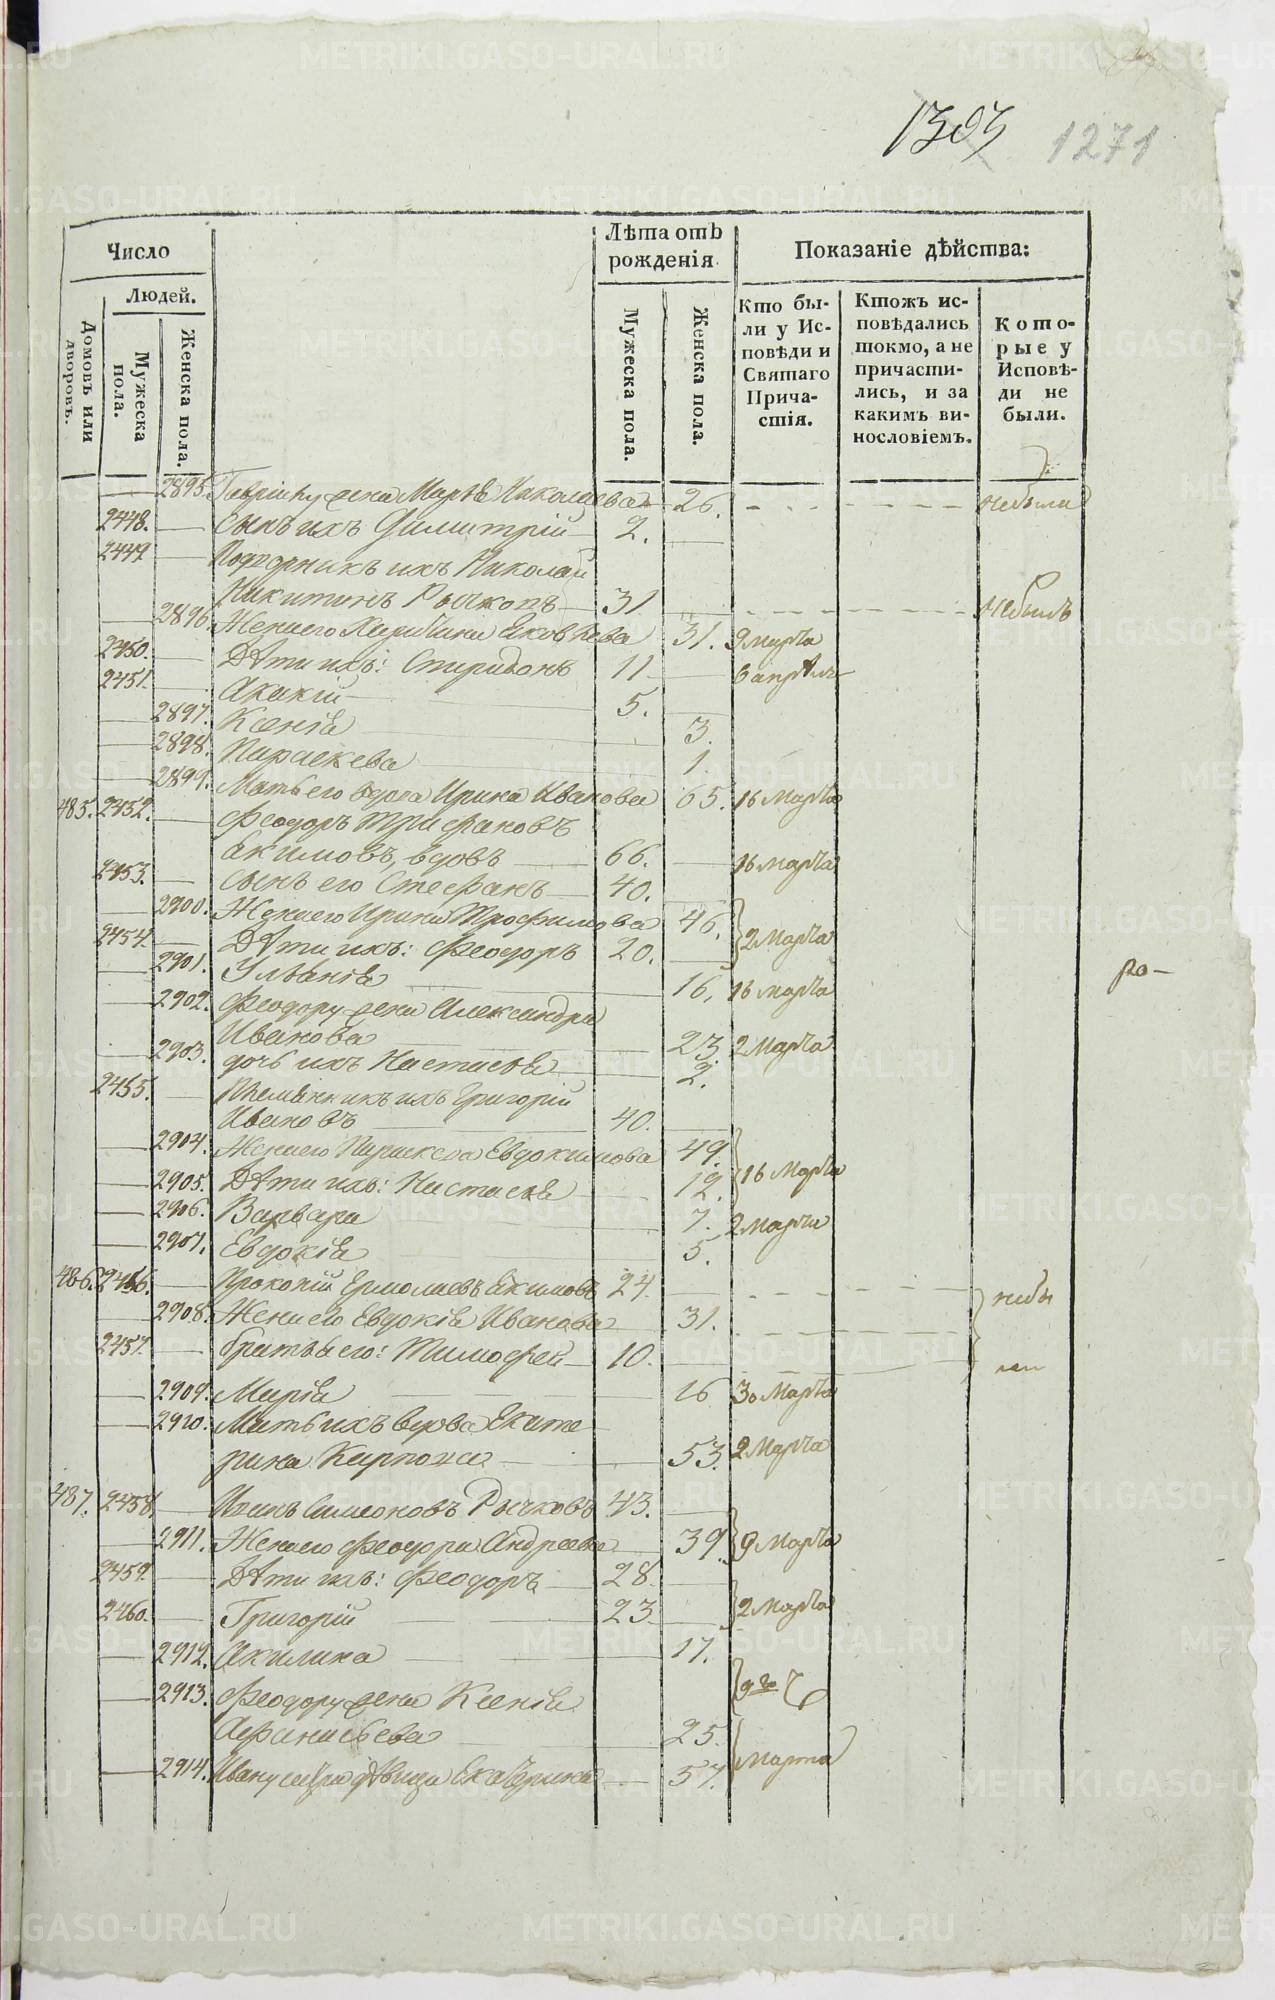 1303 1271
Число
Лѣта отъ рожденія
Показаніе дѣйства:
Людей.
Домовъ или дворовъ.
Мужеска пола.
Женска пола.
Мужеска пола.
Женска пола.
Кто были у Исповѣди и Святаго Причастія.
Ктожъ исповѣдались токмо, а не причастились, и за какимъ винословіемъ.
Которые у Исповѣди не были.
2895. Гаврiилу жена Марѳа Николаева 26. небыли
2448. сынъ ихъ Димитрій 2.
2449 Подворникъ ихъ Николай
Никитинъ Рычковъ 31 небылъ
2896. Жена его Харитина Яковлева 31. 9 марта
2450. Дѣти ихъ: Спиридонъ 11 6 апрѣля
2451. Акакій 5.
2897. Ксенія 3.
2898. Параскева 1
2899. Мать его вдова Ирина Иванова 65. 16 Марта
485. 2452. Феодоръ Трифановъ
Екимовъ, вдовъ 66. 16 марта
2453. сынъ его Стефанъ 40.
2900. Жена его Ирина Трофимова 46.
2 Марта
2454. Дѣти ихъ: Феодоръ 20.
2901. Ульянія 16. 16 марта
ро-
2902. Феодору жена Александра
Иванова 23 2 Марта
2903. дочь ихъ Настасья 2.
2455. Племянникъ ихъ Григорій
Ивановъ 40.
2904. Жена его Параскева Евдокимова 49.
16 Марта
2905. Дѣти ихъ: Настасья 12.
2906. Варвара 7. 2 марта
2907. Евдокія 5.
486. 2456. Прокопій Ермолаевъ Екимовъ 24. небы
2908. Жена его Евдокія Иванова 31.
2457. братья его: Тимофей 10. ли
2909. Марія 16 30 Марта
2910. Мать ихъ вдова Екате
рина Карпова 53. 2 Марта
487. 2458. Иванъ Симеоновъ Рычковъ 43.
2911. Жена его Феодора Андреева 39. 9 Марта
2459 Дѣти ихъ: Феодоръ 28.
2460. Григорій 23 2 Марта
2912. Акилина 17.
2913. Феодору жена Ксенія 9го
Афанасьева 25.
Марта
2914. Ивану сестра дѣвица Екатерина 57.
METRIKI.GASO-URAL.RU